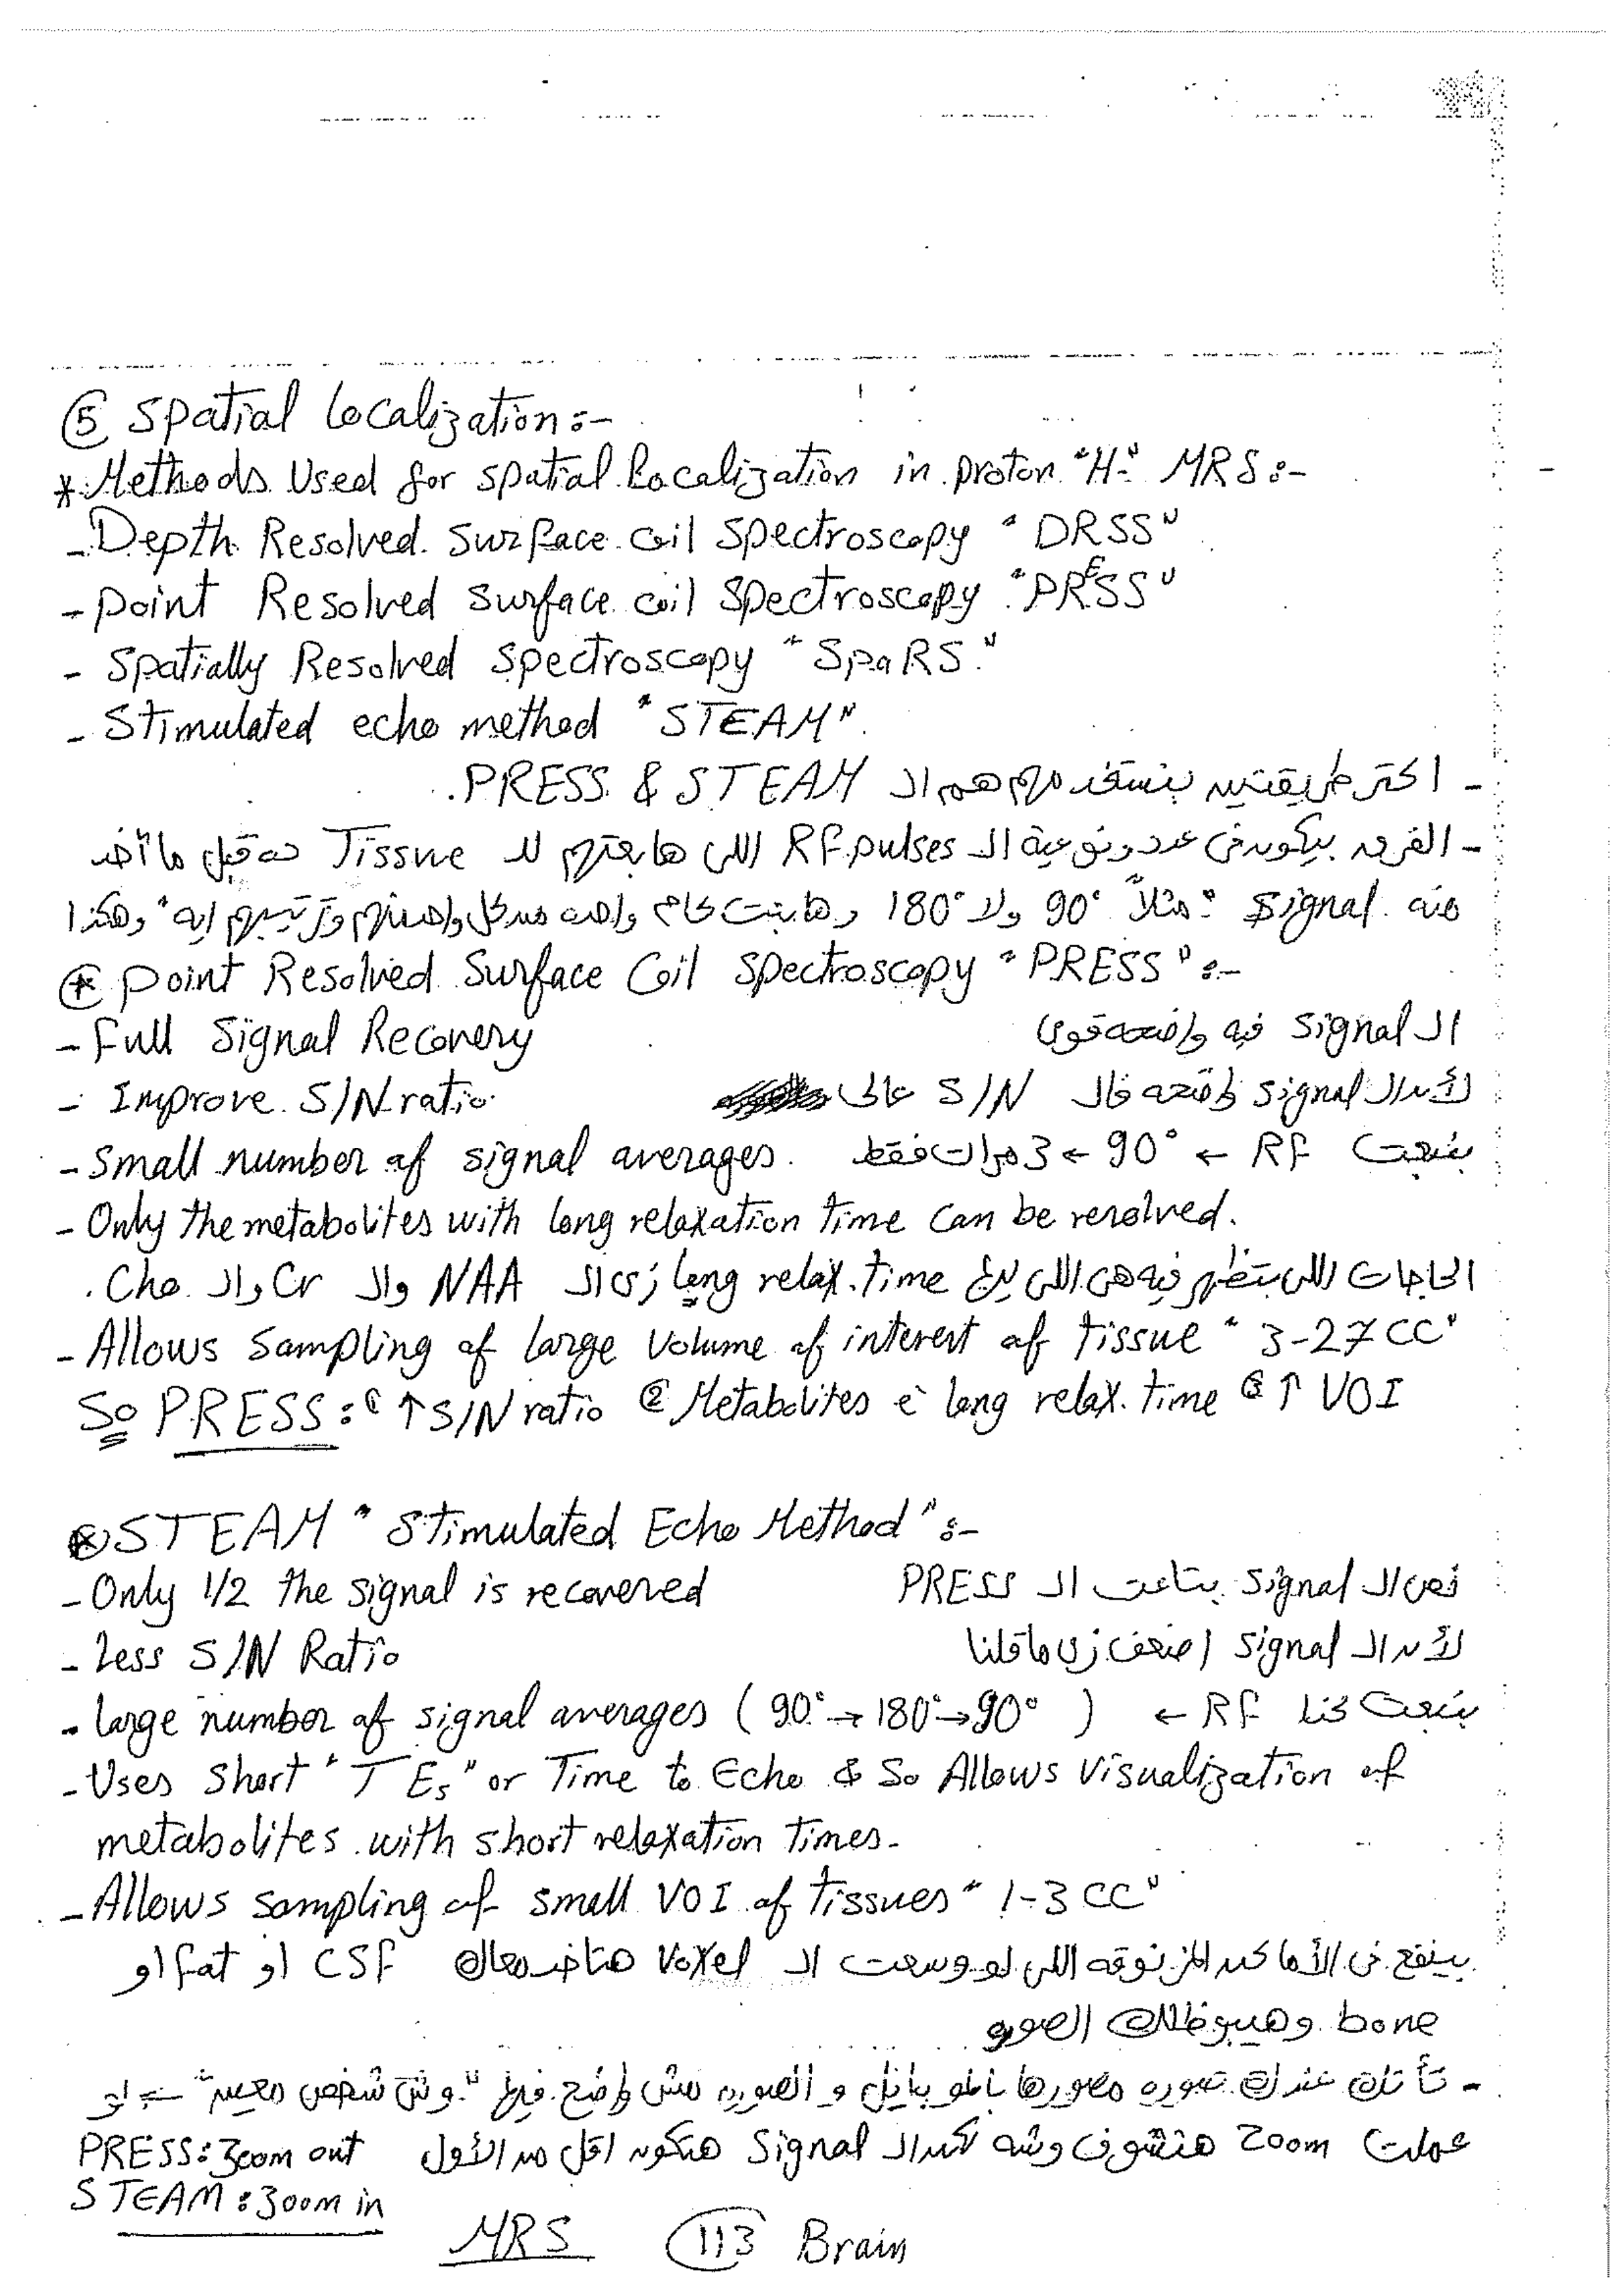 ⑤ Spatial Localization:-
* Methods Used for spatial Localization in proton "H-" MRS:-
- Depth Resolved Surface Coil Spectroscopy "DRSS"
- point Resolved surface coil Spectroscopy "PRESS"
- Spatially Resolved spectroscopy "SpaRS"
- Stimulated echo method "STEAM"
- اكتر طريقتين بنستخدمهم هم الـ PRESS & STEAM.
- الفرق بيكون فى عدد ونوعية الـ RF pulses اللى هابعتهم للـ Tissue ده قبل ما آخد
منه signal "مثلاً 90° ولا 180° وهابعت كام واحدة من كل واحد منهم وترتيبهم ايه" وهكذا
⊛ point Resolved Surface Coil Spectroscopy "PRESS":-
- Full Signal Recovery الـ signal فيه واضحه قوى
- Improve S/N ratio. لأن الـ signal واضحه فالـ S/N عالى
- Small number of signal averages. بنبعت RF ← 90° ← 3 مرات فقط
- Only the metabolites with long relaxation time can be resolved.
الحاجات اللى بتظهر فيه هى اللى ليها long relax. time زى الـ NAA والـ Cr والـ Cho.
- Allows Sampling of large Volume of interest of tissue "3-27 CC"
So PRESS: ① ↑ S/N ratio ② Metabolites c̄ long relax. time ③ ↑ VOI
⊛ STEAM "Stimulated Echo Method":-
- Only 1/2 the signal is recovered نص الـ signal بتاعت الـ PRESS
- Less S/N Ratio لأن الـ signal اضعف زى ما قلنا
- large number of signal averages (90° → 180° → 90° ) ← RF بنبعت كذا
- Uses Short "TEs" or Time to Echo & So Allows visualization of
metabolites with short relaxation times.
- Allows sampling of small VOI of tissues "1-3 CC"
بينفع فى الأماكن المزنوقه اللى لو وسعت الـ Voxel هتاخد معاك CSF او fat او
bone وهيبوظلك الصوره
- تأنك عندك صوره مصورها بالموبايل و الصوره مش واضح فيها "وش شخص معين" ⇐ لو
عملت zoom هتشوف وشه لكن الـ Signal هتكون اقل من الأول PRESS: zoom out
STEAM: zoom in
MRS 113 Brain